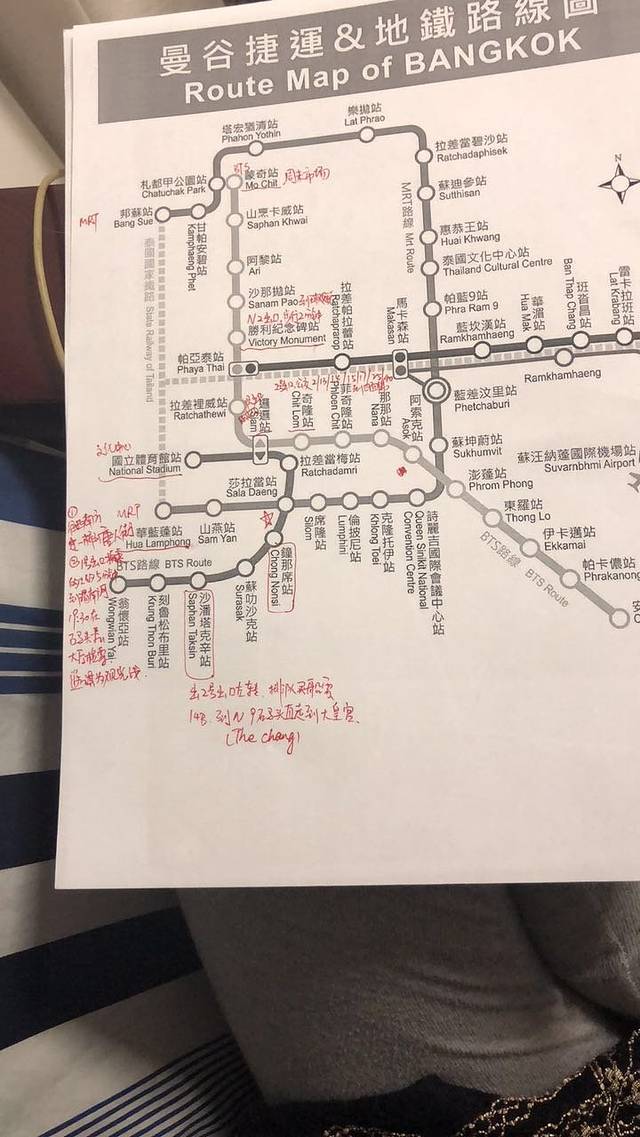 曼谷捷運&地鐵路線圖
Route Map of BANGKOK
塔宏猶清站
Phahon Yothin
樂拋站
Lat Phrao
拉差當碧沙站
Ratchadaphisek
札都甲公園站
Chatuchak Park
BTS
蒙奇站
Mo Chit
周末市場
蘇迪參站
Sutthisan
MRT
邦蘇站
Bang Sue
甘帕安碧站
Kamphaeng Phet
山眾卡威站
Saphan Khwai
MRT路線 Mrt Route
惠恭王站
Huai Khwang
泰國國家鐵路 State Railway of Tailand
阿黎站
Ari
泰國文化中心站
Thailand Cultural Centre
沙那拋站
Sanam Pao
拉差帕拉蕾站
Ratchaprarop
馬卡森站
Makasan
帕藍9站
Phra Ram 9
藍坎漢站
Ramkhamhaeng
華湄站
Hua Mak
班首昌站
Ban Thap Chang
雷卡拉班站
Lat Krabang
勝利紀念碑站
Victory Monument
帕亞泰站
Phaya Thai
Ramkhamhaeng
拉差裡威站
Ratchathewi
暹邏站
Siam
奇隆站
Chit Lom
菲奇隆站
Phloen Chit
那那站
Nana
阿索克站
Asok
藍差汶里站
Phetchaburi
國立體育館站
National Stadium
拉差當梅站
Ratchadamri
蘇坤蔚站
Sukhumvit
蘇汪納蓬國際機場站
Suvarnbhmi Airport
澎蓬站
Phrom Phong
莎拉當站
Sala Daeng
MRT
華藍蓬站
Hua Lamphong
山燕站
Sam Yan
席隆站
Silom
倫披尼站
Lumphini
克隆托伊站
Khlong Toei
詩麗吉國際會議中心站
Queen Sirikit National
Convention Centre
東羅站
Thong Lo
伊卡邁站
Ekkamai
帕卡儂站
Phrakanong
BTS路線 BTS Route
BTS路線 BTS Route
翁懷亞站
Wongwian Yai
刻魯松布里站
Krung Thon Buri
沙潘塔克辛站
Saphan Taksin
蘇叻沙克站
Surasak
鐘那席站
Chong Nonsi
19:30在
出2号出口左转、排队买船票
14B、到N9码头直走到大皇宫
(The chang)